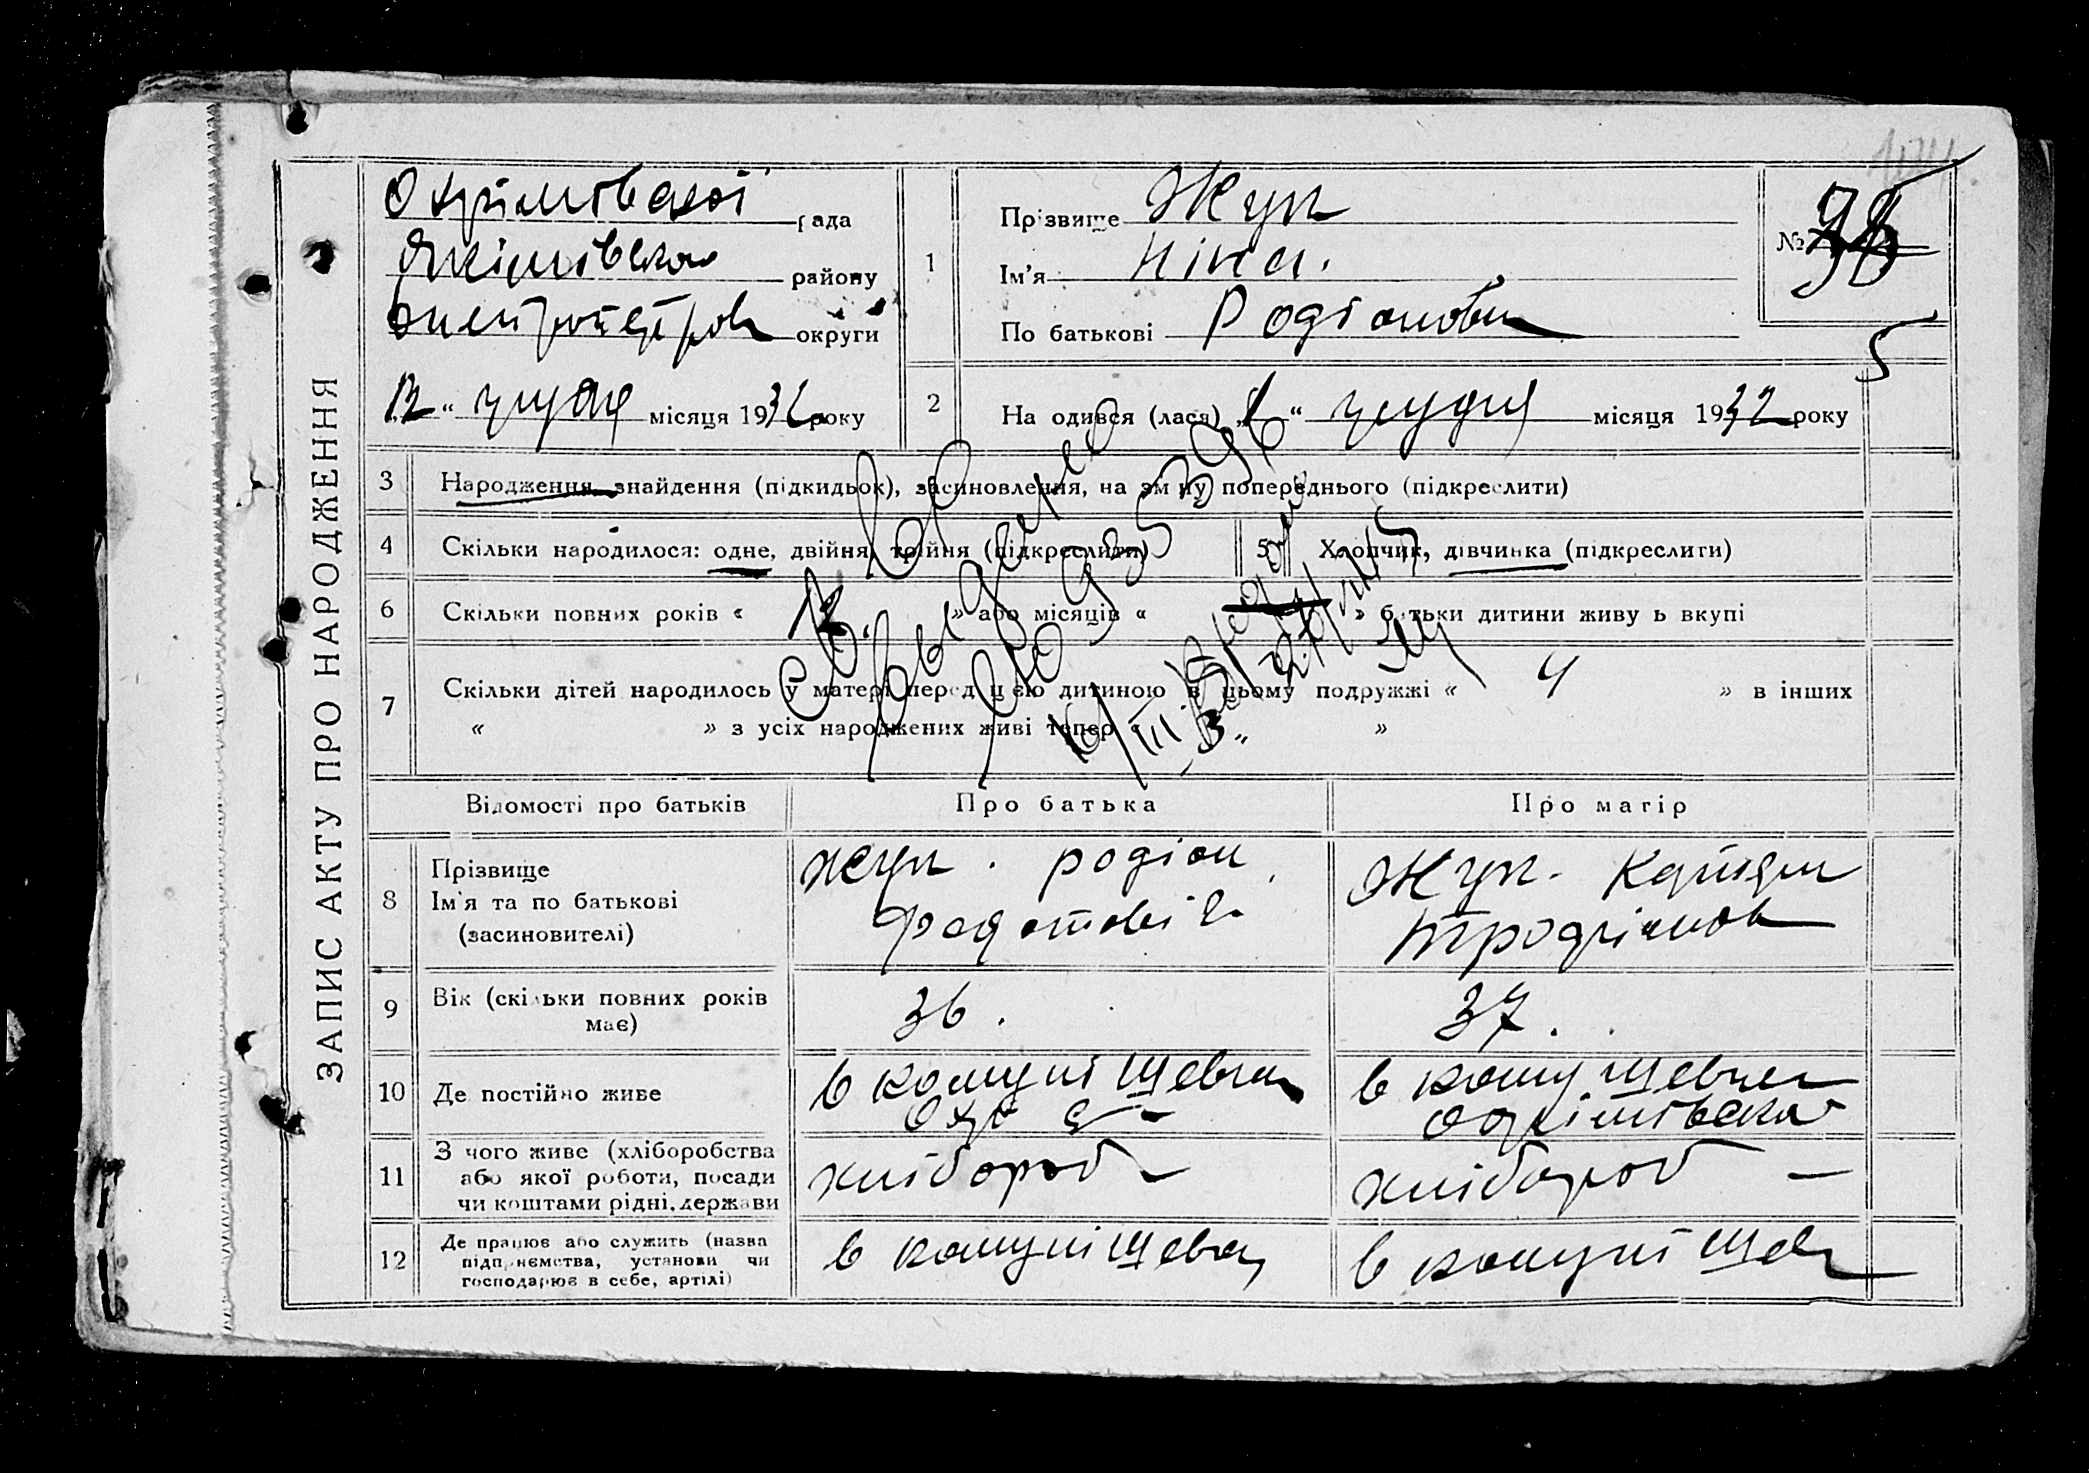 ЗАПИС АКТУ ПРО НАРОДЖЕННЯ
Охрімівської рада
Якімівська району
Дніпропетров округи
12 " грудня місяця 1932 року
1
Прізвище Жук
Ім'я Ніна.
По батькові Родіонова
№ 98
5
2 На одився (лася) „1" грудня місяця 1932 року
3 Народження, знайдення (підкидьок), засиновлення, на зм ну попереднього (підкреслити)
4 Скільки народилося: одне, двійня, трійня (підкреслити)
5 Хлопчик, дівчинка (підкреслити)
6 Скільки повних років « 12. » або місяців « » батьки дитини живу ь вкупі
7 Скільки дітей народилось у матері перед цією дитиною в цьому подружжі « 4 » в інших
« » з усіх народжених живі тепер „ 3 „ »
Св. о
выдано
Відомості про батьків
Про батька
Про матір
8 Прізвище
Ім'я та по батькові
(засиновителі)
Жук. Родіон
Федотовіч.
Жук. Катерин
9 Вік (скільки повних років має)
36.
37.
10 Де постійно живе
в комуні Шевчен
в кому Шевчен
Охрімівська
11 З чого живе (хліборобства
або якої роботи, посади
чи коштами рідні, держави
хлібороб
хлібороб —
12 Де працює або служить (назва
підприємства, установи чи
господарює в себе, артілі)
в комуні Шевчен
в комуні Шев